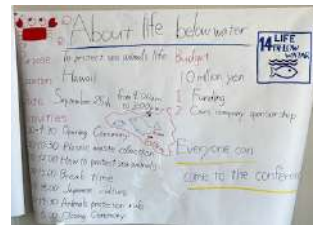 About life below water
14 LIFE BELOW WATER
To protect sea animals life
Hawaii
September 25th from 9:00am
Opening Ceremony
Plastic waste education
How to protect sea animals
Break time
Japanese culture
Animals protection rules
Closing Ceremony
Budget
10 million yen
1. Funding
2. company sponsorship
Everyone can
come to the conference